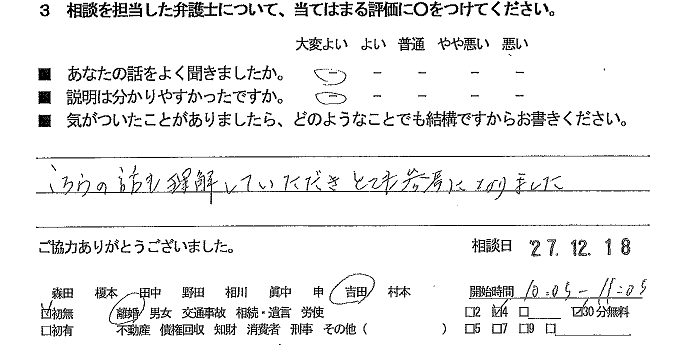 3 相談を担当した弁護士について、当てはまる評価に○をつけてください。
大変よい よい 普通 やや悪い 悪い
■ あなたの話をよく聞きましたか。 - - - - -
■ 説明は分かりやすかったですか。 - - - - -
■ 気がついたことがありましたら、どのようなことでも結構ですからお書きください。
こちらの話も理解していただきとても参考になりました
ご協力ありがとうございました。 相談日 27.12.18
森田 榎本 田中 野田 相川 眞中 申 吉田 村本 開始時間 10:05-11:05
☑初無 離婚・男女 交通事故 相続・遺言 労使 □2 ☑4 □ ☑30分無料
□初有 不動産 債権回収 知財 消費者 刑事 その他( ) □5 □7 □9 □